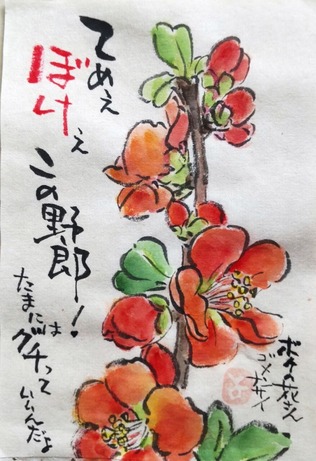 てめえ
ぼけぇ
この野郎!
たまには
グチって
いいんだよ
ボケの花さん
ゴメンナサイ